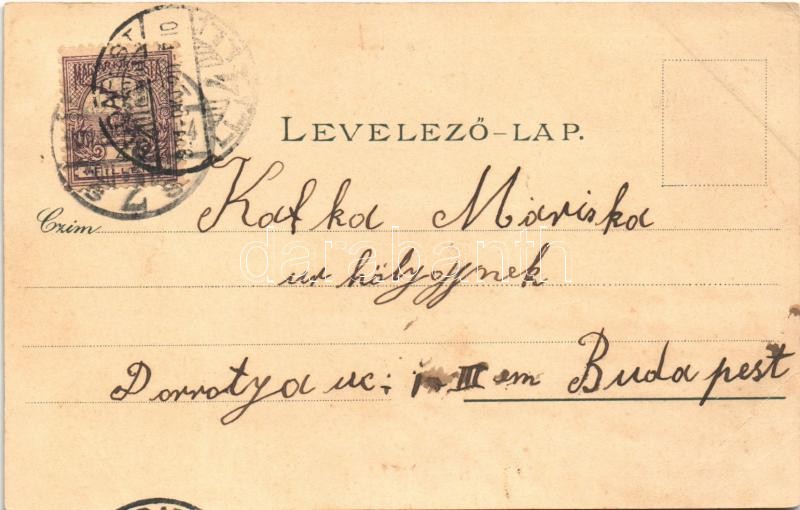 LEVELEZŐ-LAP.
Czim
Kafka Máriska
ur hölgynek
Dorrotya uc: 1. III em Budapest
darabanth